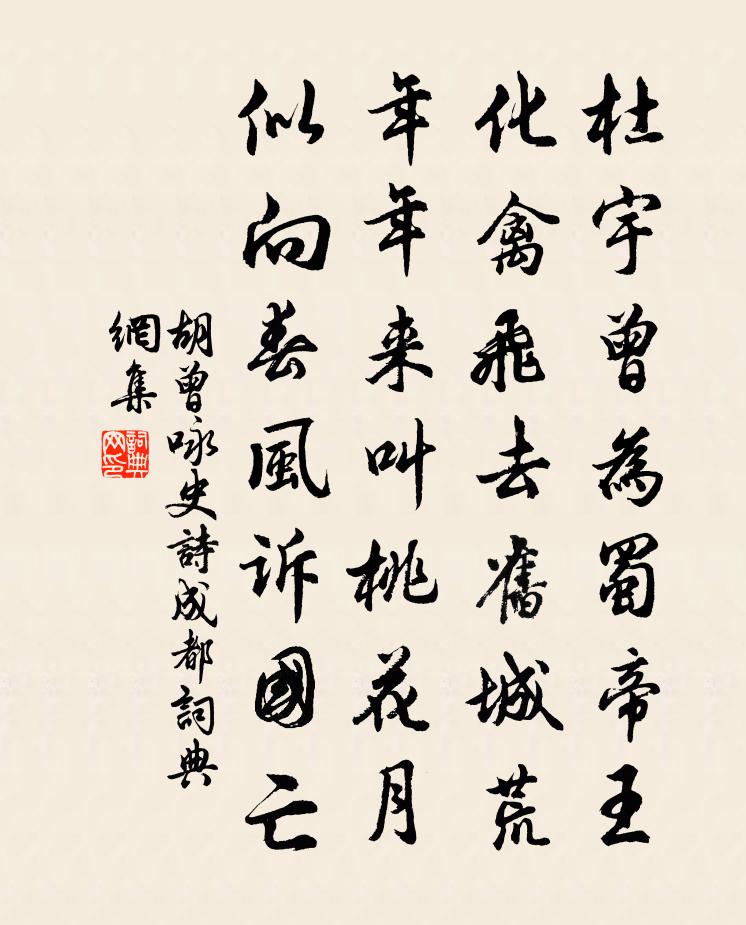 杜宇曾為蜀帝王
化禽飛去舊城荒
年年来叫桃花月
似向春風訴國亡
胡曾咏史詩成都詞典
網集
詞典
网印